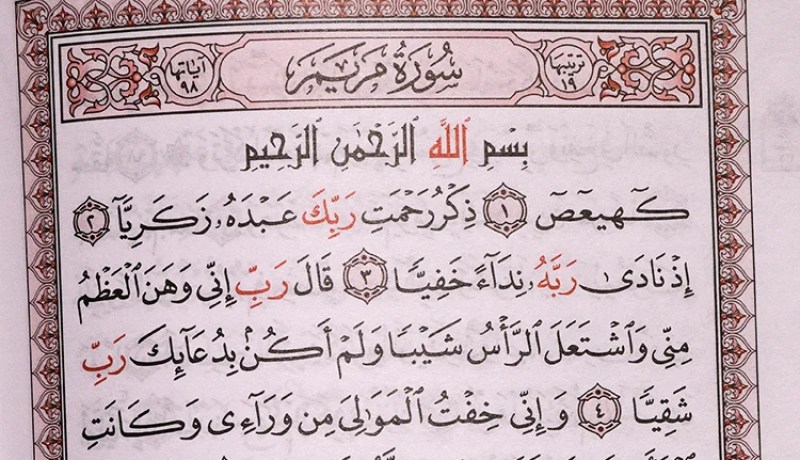 ترتيبها ١٩ سُورَةُ مَرْيَمَ آياتها ٩٨
بِسْمِ ٱللَّهِ ٱلرَّحْمَٰنِ ٱلرَّحِيمِ
كٓهيعٓصٓ ١ ذِكْرُ رَحْمَتِ رَبِّكَ عَبْدَهُۥ زَكَرِيَّآ ٢
إِذْ نَادَىٰ رَبَّهُۥ نِدَآءً خَفِيًّا ٣ قَالَ رَبِّ إِنِّى وَهَنَ ٱلْعَظْمُ
مِنِّى وَٱشْتَعَلَ ٱلرَّأْسُ شَيْبًا وَلَمْ أَكُنۢ بِدُعَآئِكَ رَبِّ
شَقِيًّا ٤ وَإِنِّى خِفْتُ ٱلْمَوَٰلِىَ مِن وَرَآءِى وَكَانَتِ